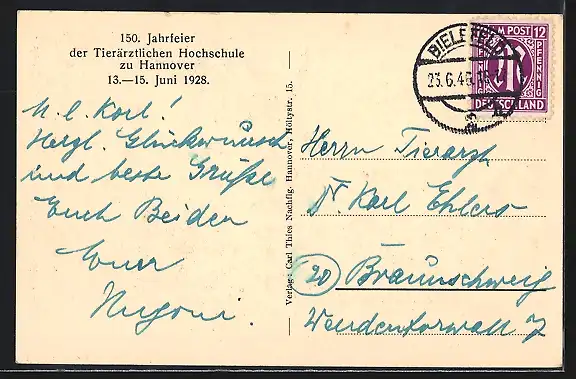 150. Jahrfeier
der Tierärztlichen Hochschule
zu Hannover
13.—15. Juni 1928.
M. l. Karl!
Herzl. Glückwünsche
und beste Grüße
Euch Beiden
Euer
Verlag: Carl Thies Nachflg. Hannover, Höltystr. 15.
BIELEFELD
23.6.46
AM POST 12
PFENNIG
DEUTSCHLAND
Herrn Tierarzt
Dr Karl Ehlers
20 Braunschweig
Wendentorwall 7